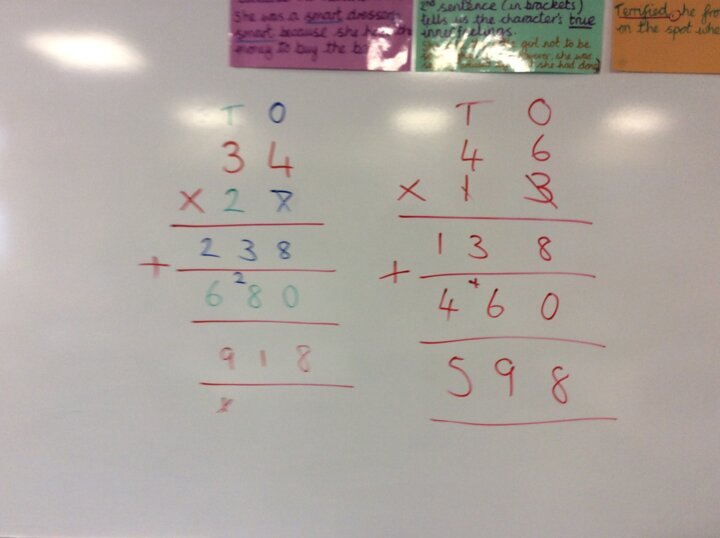 She was a smart dresser,
smart because she
money to buy the
2nd sentence (in brackets)
tells us the character's true
inner feelings.
girl not to be
she was
she had done)
Terrified, she fro
on the spot whe
T O
3 4
x 2 7
2 3 8
+
2
6 8 0
9 1 8
T O
4 6
x 1 3
1 3 8
+
4 6 0
5 9 8